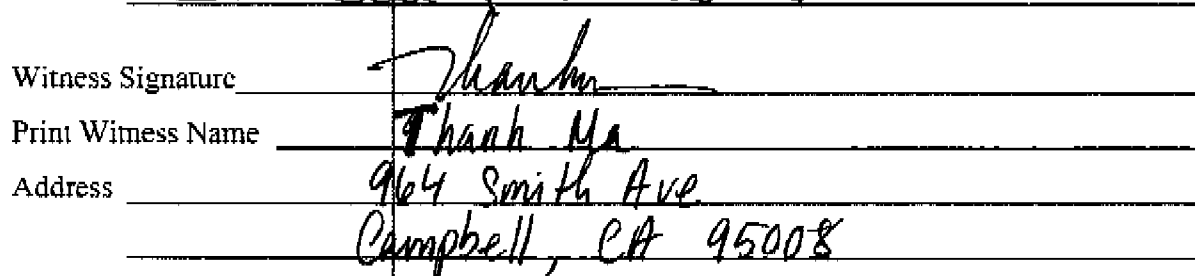 Witness Signature Thanhm
Print Witness Name Thanh Ma
Address 964 Smith Ave
Campbell, CA 95008